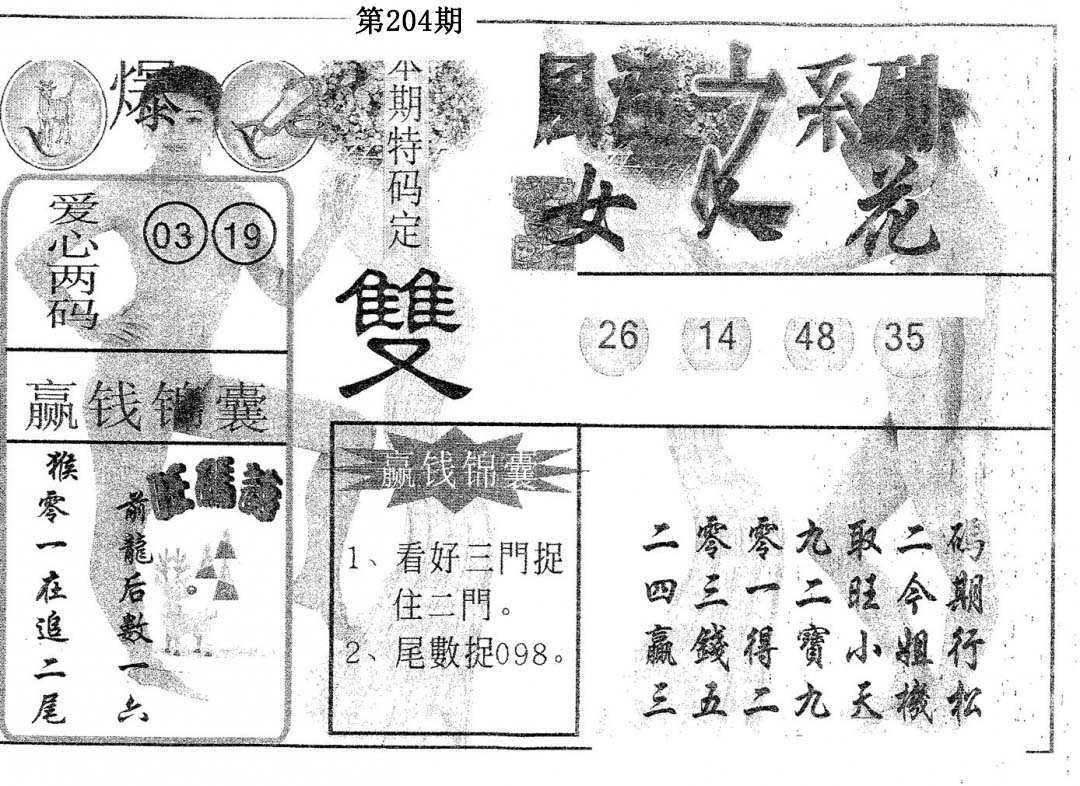 第204期
爆
本期特码定
雙
系列
女之花
爱心两码
03 19
26 14 48 35
赢钱锦囊
旺瑪詩
前龍后数一六
猴零一在追二尾
赢钱锦囊
1、看好三門捉
住二門。
2、尾數捉098。
码期行松
二今姐機
取旺小天
九二寶九
零一得二
零三錢五
二四贏三